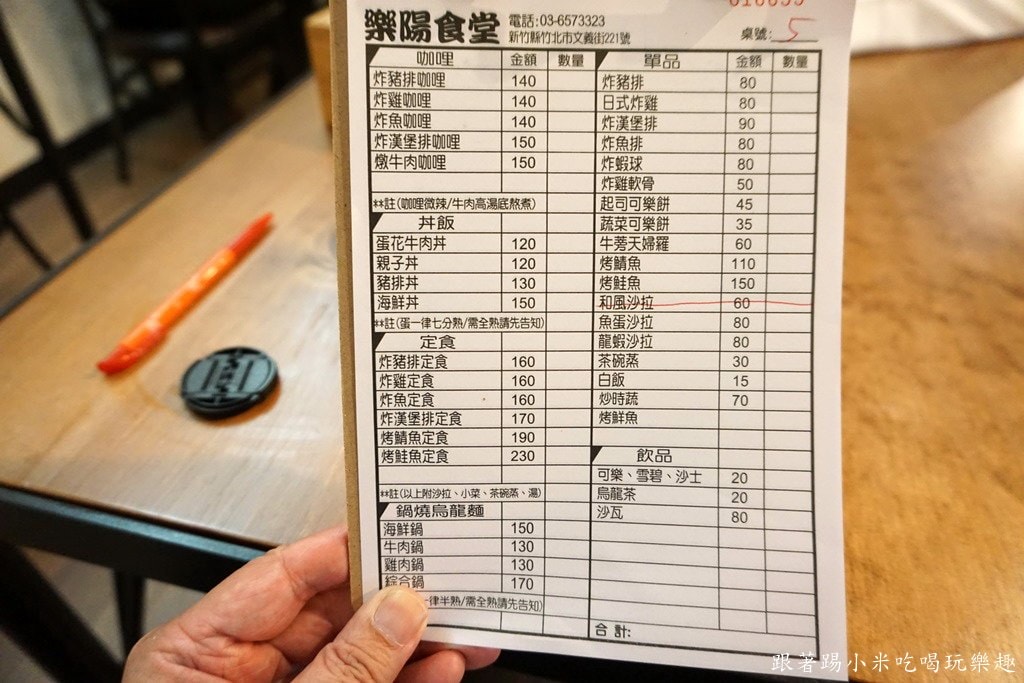 樂陽食堂
電話:03-6573323
新竹縣竹北市文義街221號
桌號: 5
咖哩 金額 數量
炸豬排咖哩 140
炸雞咖哩 140
炸魚咖哩 140
炸漢堡排咖哩 150
燉牛肉咖哩 150
**註(咖哩微辣/牛肉高湯底熬煮)
丼飯
蛋花牛肉丼 120
親子丼 120
豬排丼 130
海鮮丼 150
**註(蛋一律七分熟/需全熟請先告知)
定食
炸豬排定食 160
炸雞定食 160
炸魚定食 160
炸漢堡排定食 170
烤鯖魚定食 190
烤鮭魚定食 230
**註(以上附沙拉、小菜、茶碗蒸、湯)
鍋燒烏龍麵
海鮮鍋 150
牛肉鍋 130
雞肉鍋 130
綜合鍋 170
一律半熟/需全熟請先告知)
單品 金額 數量
炸豬排 80
日式炸雞 80
炸漢堡排 90
炸魚排 80
炸蝦球 80
炸雞軟骨 50
起司可樂餅 45
蔬菜可樂餅 35
牛蒡天婦羅 60
烤鯖魚 110
烤鮭魚 150
和風沙拉 60
魚蛋沙拉 80
龍蝦沙拉 80
茶碗蒸 30
白飯 15
炒時蔬 70
烤鮮魚
飲品
可樂、雪碧、沙士 20
烏龍茶 20
沙瓦 80
合計:
跟著踢小米吃喝玩樂趣